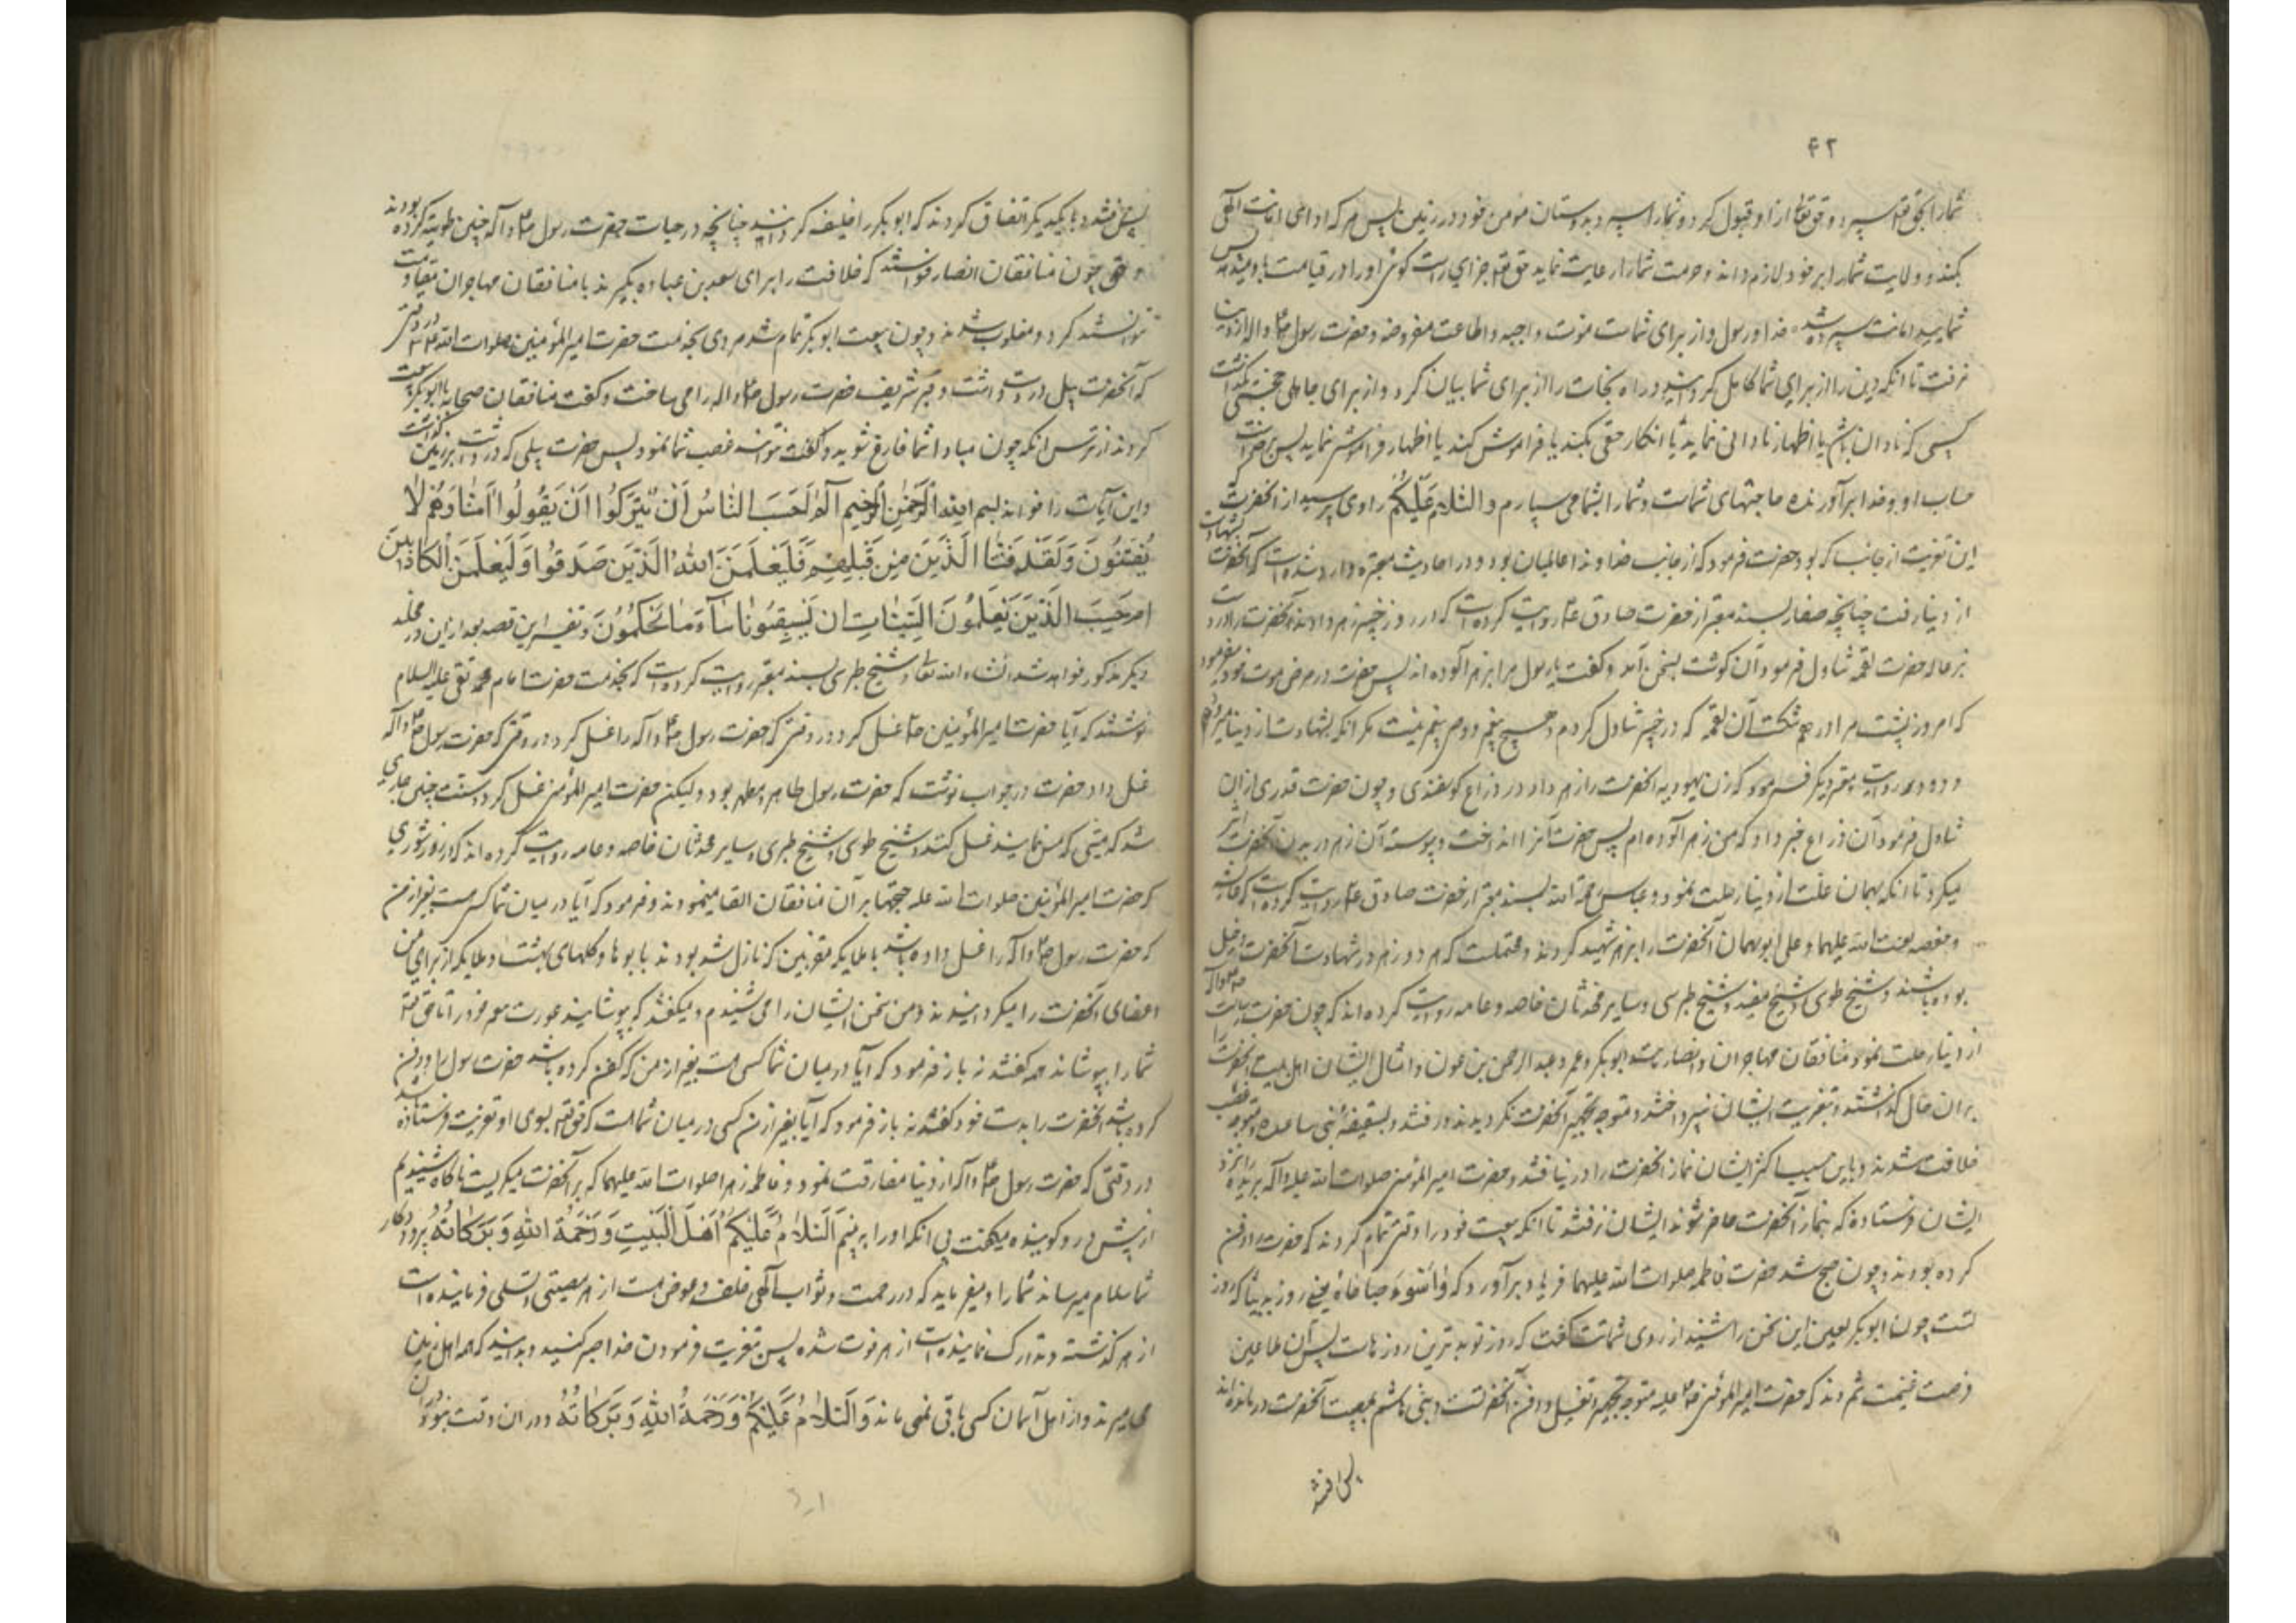 ۴۲
شما را بحق تع سپرد و حق تعالی از او قبول کرد و شما را سپرد بدوستان مؤمن خود در زمین پس هر که ادای امانت الهی
بکند و ولایت شما را بر خود لازم داند و حرمت شما را رعایت نماید حق تع جزای راست کوئی او را در قیامت باو میدهد پس
شمایید امانت سپرده شده خدا و رسول و از برای شماست مودت واجبه و اطاعت مفروضه و حضرت رسول ص و اله از دنیا
نرفت تا انکه دین را از برای شما کامل کردانید و راه نجات را از برای شما بیان کرد و از برای جاهلی حجتی نکذاشت
کسی که نادان باشد یا اظهار نادانی نماید یا انکار حقی بکند یا فراموش کند یا اظهار فراموشی نماید پس بر خداست
حساب او و خدا برآورنده حاجتهای شماست و شما را بخدا می سپارم و السّلام عَلَیکُم راوی پرسید از آنحضرت
این تعزیت از جانب که بود حضرت فرمود که از جانب خداوند عالمیان بود و در احادیث معتبره وارد شده است که آنحضرت بشهادت
از دنیا رفت چنانچه صفار بسند معتبر از حضرت صادق ع روایت کرده است که در روز خیبر زهر دادند آنحضرت را در دست
بزغاله حضرت لقمه تناول فرمود آن کوشت بسخن آمد و کفت یا رسول مرا بزهر آلوده اند پس حضرت در مرض موت خود میفرمود
که امروز پشت مرا درهم شکست آن لقمه که در خیبر تناول کردم و هیچ پیغمبر و وصی پیغمبر نیست مکر انکه بشهادت از دنیا میرود
و در روایت معتبر دیکر فرمود که زن یهودیه آنحضرت را زهر داد در ذراع کوسفندی و چون حضرت قدری از ان
تناول فرمود آن ذراع خبر داد که من زهر آلوده ام پس حضرت آنرا انداخت و پیوسته آن زهر در بدن آنحضرت اثر
میکرد تا انکه بهمان علت از دنیا رحلت نمود و عیاشی رحمة الله بسند معتبر از حضرت صادق ع روایت کرده است که عایشه
و حفصه لعنت الله علیهما و علی ابویهما آنحضرت را بزهر شهید کردند و محتملست که هر دو زهر در شهادت آنحضرت دخیل
بوده باشند و شیخ طوسی و شیخ مفید و شیخ طبرسی و سایر محدثان خاصه و عامه روایت کرده اند که چون حضرت رسالت ص و اله
از دنیا رحلت نمود منافقان مهاجران و انصار مثل ابوبکر و عمر و عبدالرحمن بن عوف و امثال ایشان اهل بیت آنحضرت را
بران حال کذاشتند و بتعزیت ایشان نپرداختند و متوجه تجهیز آنحضرت نکردیدند و رفتند بسقیفهٔ بنی ساعده و متوجه غصب
خلافت شدند و باین سبب اکثر ایشان نماز آنحضرت را در نیافتند و حضرت امیرالمؤمنین صلوات الله علیه و اله بریده را نزد
ایشان فرستاد که بنماز آنحضرت حاضر شوند ایشان نرفتند تا انکه بیعت خود را وقتی تمام کردند که حضرت را دفن
کرده بودند و چون صبح شد حضرت فاطمه صلوات الله علیهما فریاد برآورد که وا سُوءَ صَباحاهُ یعنی روز بدیست که روز
تست چون ابوبکر لعین این سخن را شنید از روی شماتت کفت که روز تو بدترین روزهاست پس آن ملاعین
فرصت غنیمت شمردند که حضرت امیرالمؤمنین ص علیه متوجه تجهیز و تغسیل و دفن آنحضرتست و بنی هاشم بمصیبت آنحضرت درمانده اند
پس رفتند
پس رفتند و با یکدیکر اتفاق کردند که ابوبکر را خلیفه کردانند چنانچه در حیات حضرت رسول ص و اله چنین توطیه کرده بودند
و چون منافقان انصار خواستند که خلافت را برای سعد بن عباده بکیرند با منافقان مهاجران مقاومت
نتوانستند کرد و مغلوب شدند و چون بیعت ابوبکر تمام شد مردی بخدمت حضرت امیرالمؤمنین صلوات الله علیه آمد در وقتی
که آنحضرت بیل در دست داشت و قبر شریف حضرت رسول ص و اله را می ساخت و کفت منافقان صحابه با ابوبکر بیعت
کردند از ترس انکه چون مبادا شما فارغ شوید و کفت نتوانند غصب شما نمود پس حضرت بیلی که در دست داشت بر زمین کذاشت
و این آیات را خواند بسم الله الرَّحمٰنِ الرَّحیمِ الٓمٓ اَحَسِبَ النّاسُ اَنْ یُتْرَکُوا اَنْ یَقُولُوا آمَنّا وَهُمْ لا
یُفْتَنُونَ وَلَقَدْ فَتَنَّا الَّذینَ مِنْ قَبْلِهِمْ فَلَیَعْلَمَنَّ اللهُ الَّذینَ صَدَقُوا وَلَیَعْلَمَنَّ الْکاذِبینَ
اَمْ حَسِبَ الَّذینَ یَعْمَلُونَ السَّیِّئاتِ اَن یَسْبِقُونا ساءَ ما یَحْکُمُونَ و تفسیر این قصه بعد از این در مجلد
دیکر مذکور خواهد شد انشاء الله تعا و شیخ طبرسی بسند معتبر روایت کرده است که بخدمت حضرت امام محمد تقی علیه السلام
نوشتند که آیا حضرت امیرالمؤمنین ص غسل کرد در وقتی که حضرت رسول ص و اله را غسل کرد در وقتی که حضرت رسول ص و اله
غسل داد حضرت در جواب نوشت که حضرت رسول طاهر و مطهر بود ولیکن حضرت امیرالمؤمنین غسل کرد و سنت چنین جاری
شد که میتی که مس نمایند غسل کنند و شیخ طوسی و شیخ طبرسی و سایر محدثان خاصه و عامه روایت کرده اند که در روز شوری
که حضرت امیرالمؤمنین صلوات الله علیه حجتها بر آن منافقان القا مینمودند و فرمود که آیا در میان شما کسی هست بغیر از من
که حضرت رسول ص و اله را غسل داده باشد با ملایکه مقربین که نازل شده بودند با بوها و کلهای بهشت و ملایکه از برای من
اعضای آنحضرت را میکردانیدند و من سخن ایشان را می شنیدم و میکفتند که بپوشانید عورت پیغمبر خود را تا حق تع
شما را بپوشاند همه کفتند نه باز فرمود که آیا در میان شما کسی هست بغیر از من که کفن کرده باشد حضرت رسول را و دفن
کرده باشد آنحضرت را بدست خود کفتند نه باز فرمود که آیا بغیر از من کسی در میان شما هست که حق تع بسوی او تعزیت فرستاده باشد
در وقتی که حضرت رسول ص و اله از دنیا مفارقت نمود و فاطمه زهرا صلوات الله علیهما که بر آنحضرت میکریست ناکاه شنیدم
از پیش در و کوینده میکفت بی انکه او را به بینم اَلسَّلامُ عَلَیکُمْ اَهْلَ الْبَیْتِ وَرَحْمَةُ اللهِ وَبَرَکاتُهُ پروردکار
شما سلام میرساند شما را و میفرماید که در رحمت و ثواب الهی خلف و عوض هست از هر مصیبتی و تسلی فرماینده است
از هر کذشته و تدارک نماینده است از هر فوت شده پس بتعزیت فرمودن خدا صبر کنید و بدانید که همه اهل زمین
می میرند و از اهل آسمان کسی باقی نمی ماند وَ السَّلامُ عَلَیْکُمْ وَرَحْمَةُ اللهِ وَبَرَکاتُهُ و در ان وقت نبود در ان